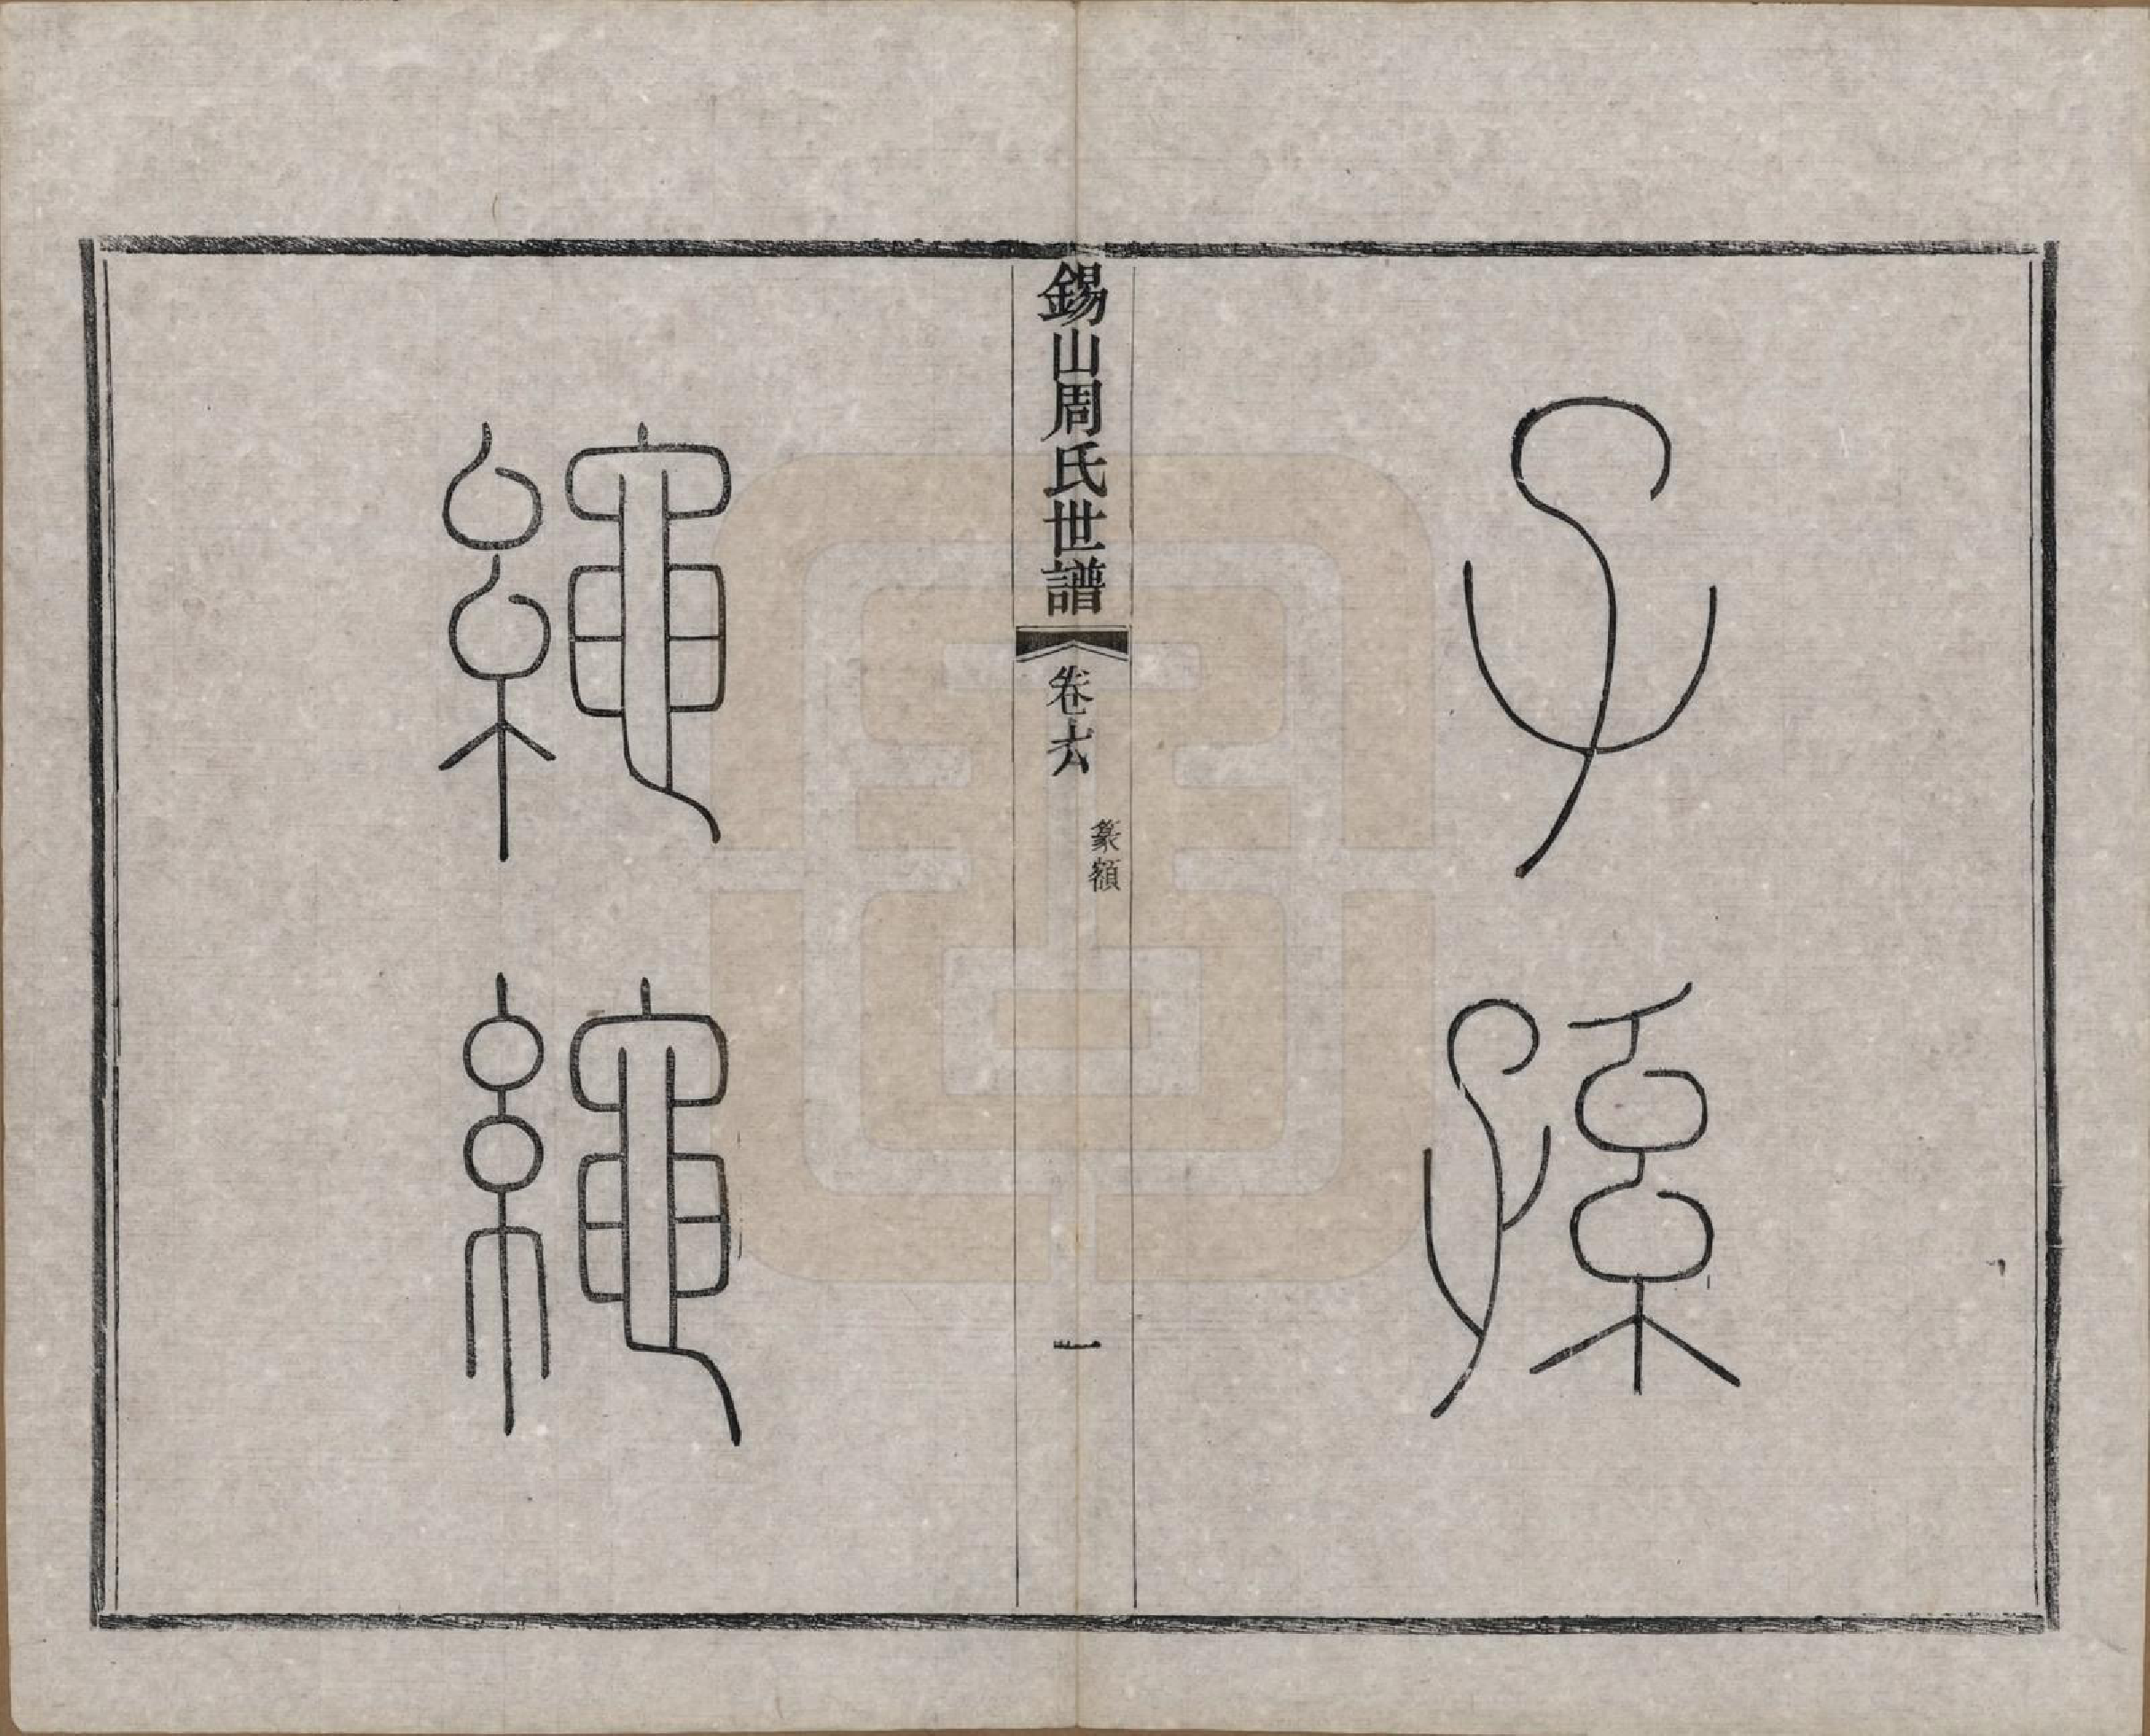 子孫
錫山周氏世譜
卷六
篆額
一
繩繩